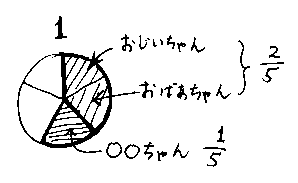 1
おじいちゃん
おばあちゃん
2/5
○○ちゃん 1/5